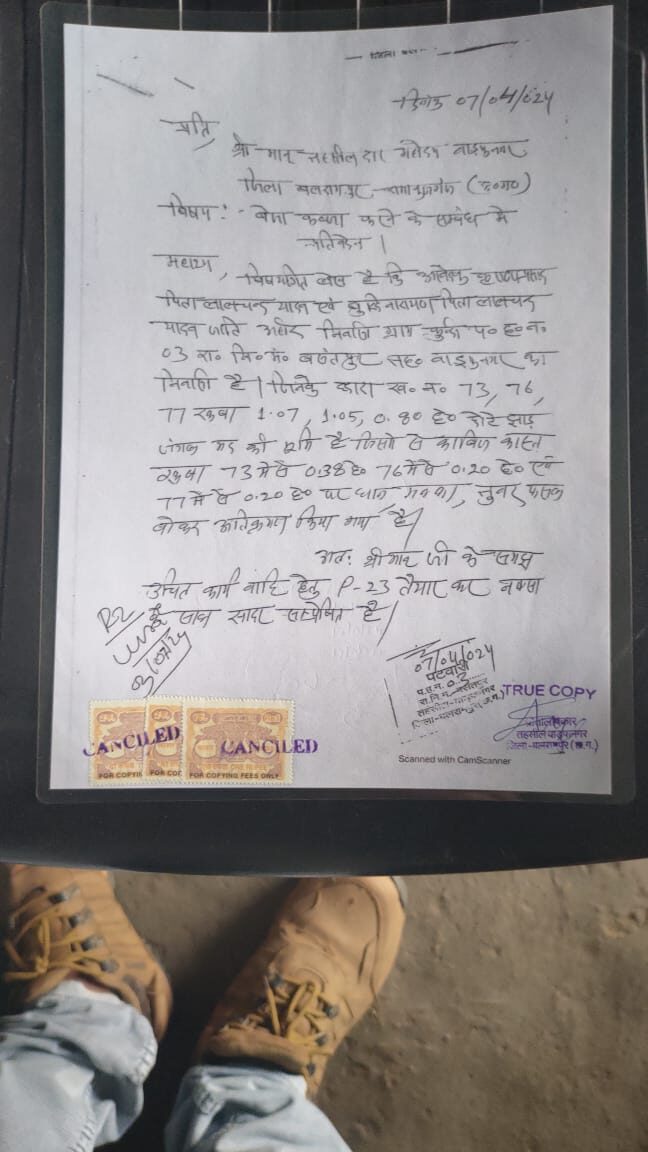 दिनांक 07/04/024
प्रति,
श्रीमान तहसीलदार महोदय वाड्रफनगर
जिला बलरामपुर-रामानुजगंज (छ०ग०)
विषय :- बेजा कब्जा करने के सम्बंध में
प्रतिवेदन |
महोदय,
विषयांतर्गत लेख है कि आवेदक
पिता लालचन्द यादव एवं पिता लालचन्द
यादव जाति अहीर निवासी ग्राम प० ह० न०
03 रा० नि० मं० बसंतपुर तह० वाड्रफनगर का
निवासी है | जिनके द्वारा ख० न० 73, 76,
77 रकबा 1.07, 1.05, 0.80 हे० छोटे झाड़
जंगल मद की भूमि है जिसमें से काबिज कास्त
रकबा 73 में से 0.38 हे० 76 में से 0.20 हे० एवं
77 में से 0.20 हे० पर धान मक्का, फसल
बोकर अतिक्रमण किया गया है |
अतः श्रीमान जी के समक्ष
उचित कार्यवाहि हेतु P-23 तैयार कर नक्सा
के साथ सादर सम्प्रेषित है |
07/04/024
पटवारी
प.ह.न. 03
रा.नि.मं. बसंतपुर
जिला-बलरामपुर (छ.ग.)
TRUE COPY
तहसील वाड्रफनगर
जिला-बलरामपुर (छ.ग.)
CANCILED CANCILED
FOR COPYIN FOR COP FOR COPYING FEES ONLY
Scanned with CamScanner